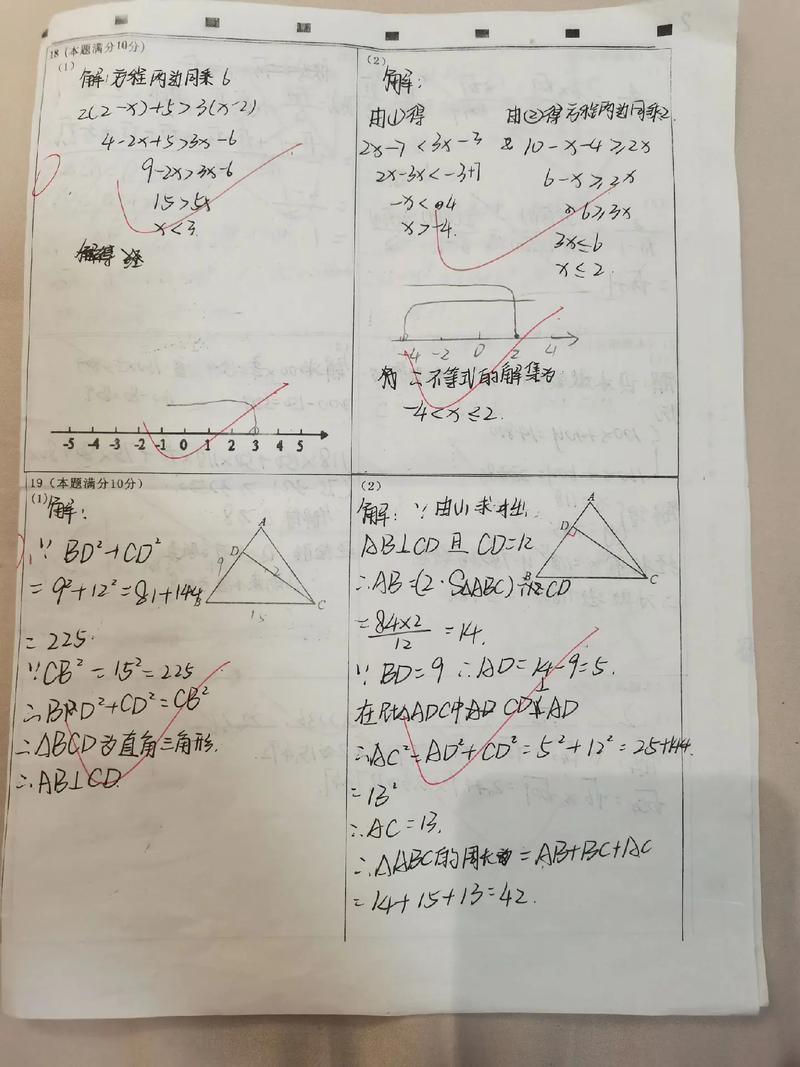 18 (本题满分10分)
(1)
解:方程两边同乘6
2(2-x)+5>3(x-2)
4-2x+5>3x-6
9-2x>3x-6
15>5x
x<3
解得
-5 -4 -3 -2 -1 0 1 2 3 4 5
(2)
解:
由①得
2x-7<3x-3
2x-3x<-3+7
-x<4
x>-4.
由②得方程两边同乘2
10-x-4≥2x
6-x≥2x
6≥3x
3x≤6
x≤2.
-4 -2 0 2 4
∴不等式的解集为
-4<x≤2.
19 (本题满分10分)
(1)
解:
∵BD²+CD²
=9²+12²=81+144
=225.
∵CB²=15²=225
∴BD²+CD²=CB²
∴△BCD为直角三角形.
∴AB⊥CD.
A
D
9
12
B
C
15
(2)
解:∵由(1)求出
AB⊥CD且CD=12
∴AB=(2·S△ABC)÷CD
=84×2/12=14.
∵BD=9∴AD=14-9=5.
在Rt△ADC中CD⊥AD
∴AC²=AD²+CD²=5²+12²=25+144
=13²
∴AC=13.
∴△ABC的周长=AB+BC+AC
=14+15+13=42.
A
D
B
C